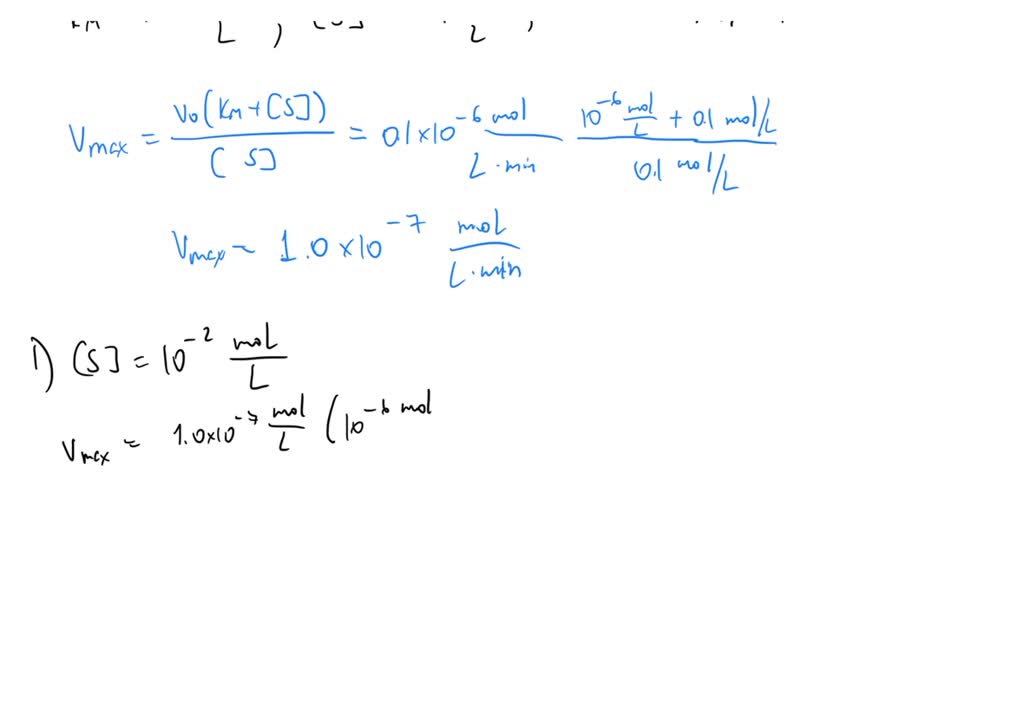 L , [S] L ,
Vmax = v₀(KM+[S])/[S] = 0.1×10⁻⁶ mol/L·min (10⁻⁶ mol/L + 0.1 mol/L)/(0.1 mol/L)
Vmax ~ 1.0×10⁻⁷ mol/L·min
1) [S] = 10⁻² mol/L
Vmax = 1.0×10⁻⁷ mol/L (10⁻⁶ mol